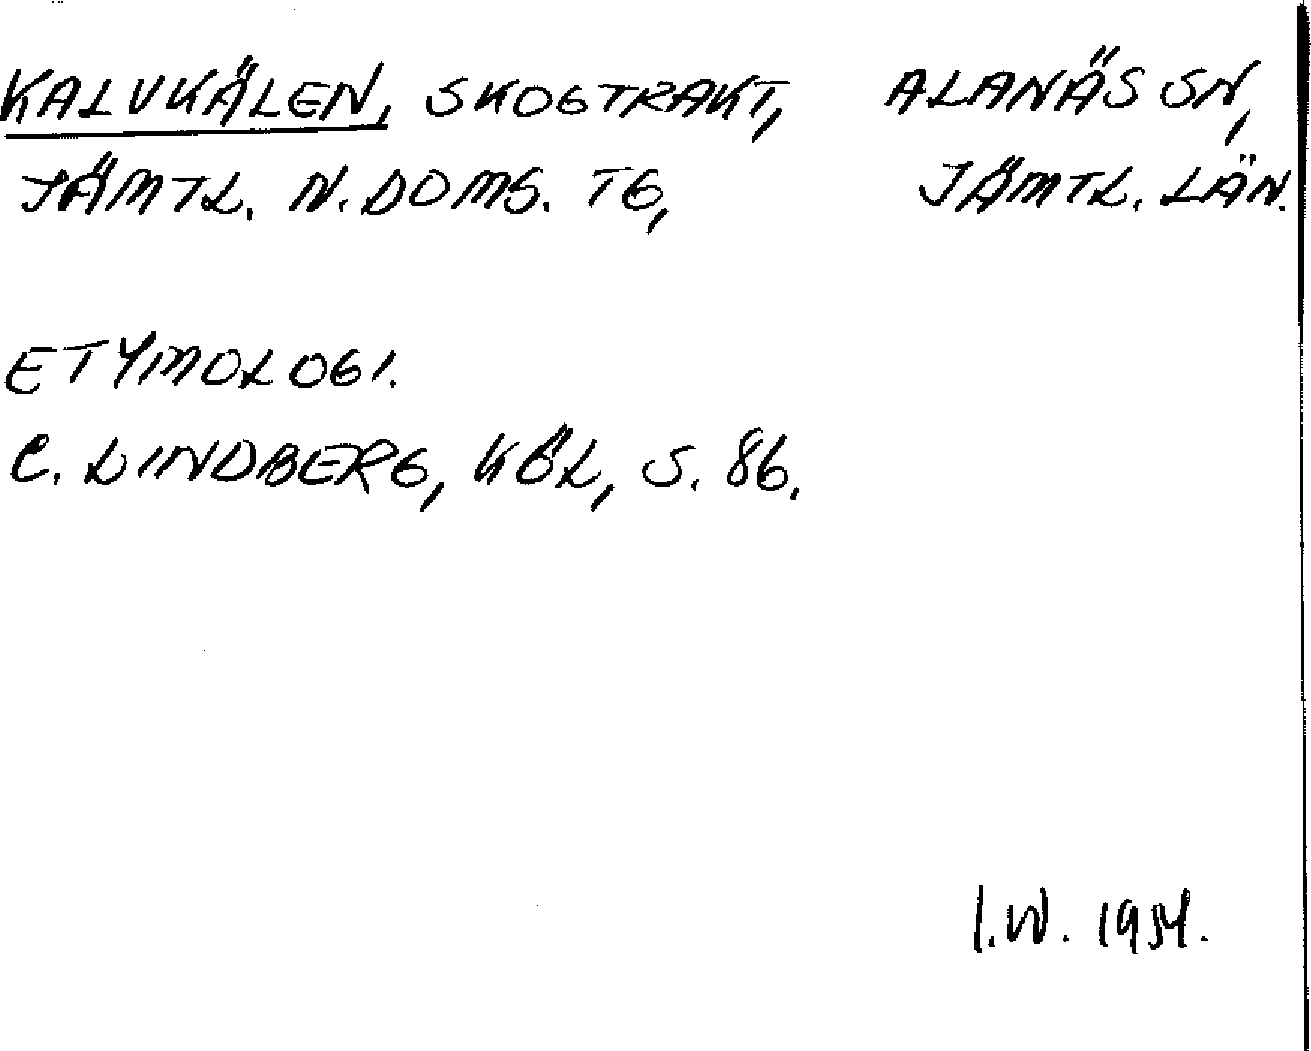 KALVKÄLEN, SKOGTRAKT, ALANÄS SN,
JÄMTL. N. DOMS. TG, JÄMTL. LÄN.
ETYMOLOGI.
C. LINDBERG, KÖL, S. 86.
I.W. 1954.